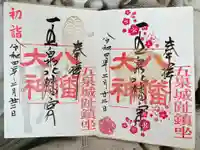 初詣
奉拝
五泉城趾鎮坐
八幡大神
五泉八幡宮
令和四年二月廿二日
奉拝
五泉城趾鎮坐
八幡大神
五泉八幡宮
令和四年二月廿二日